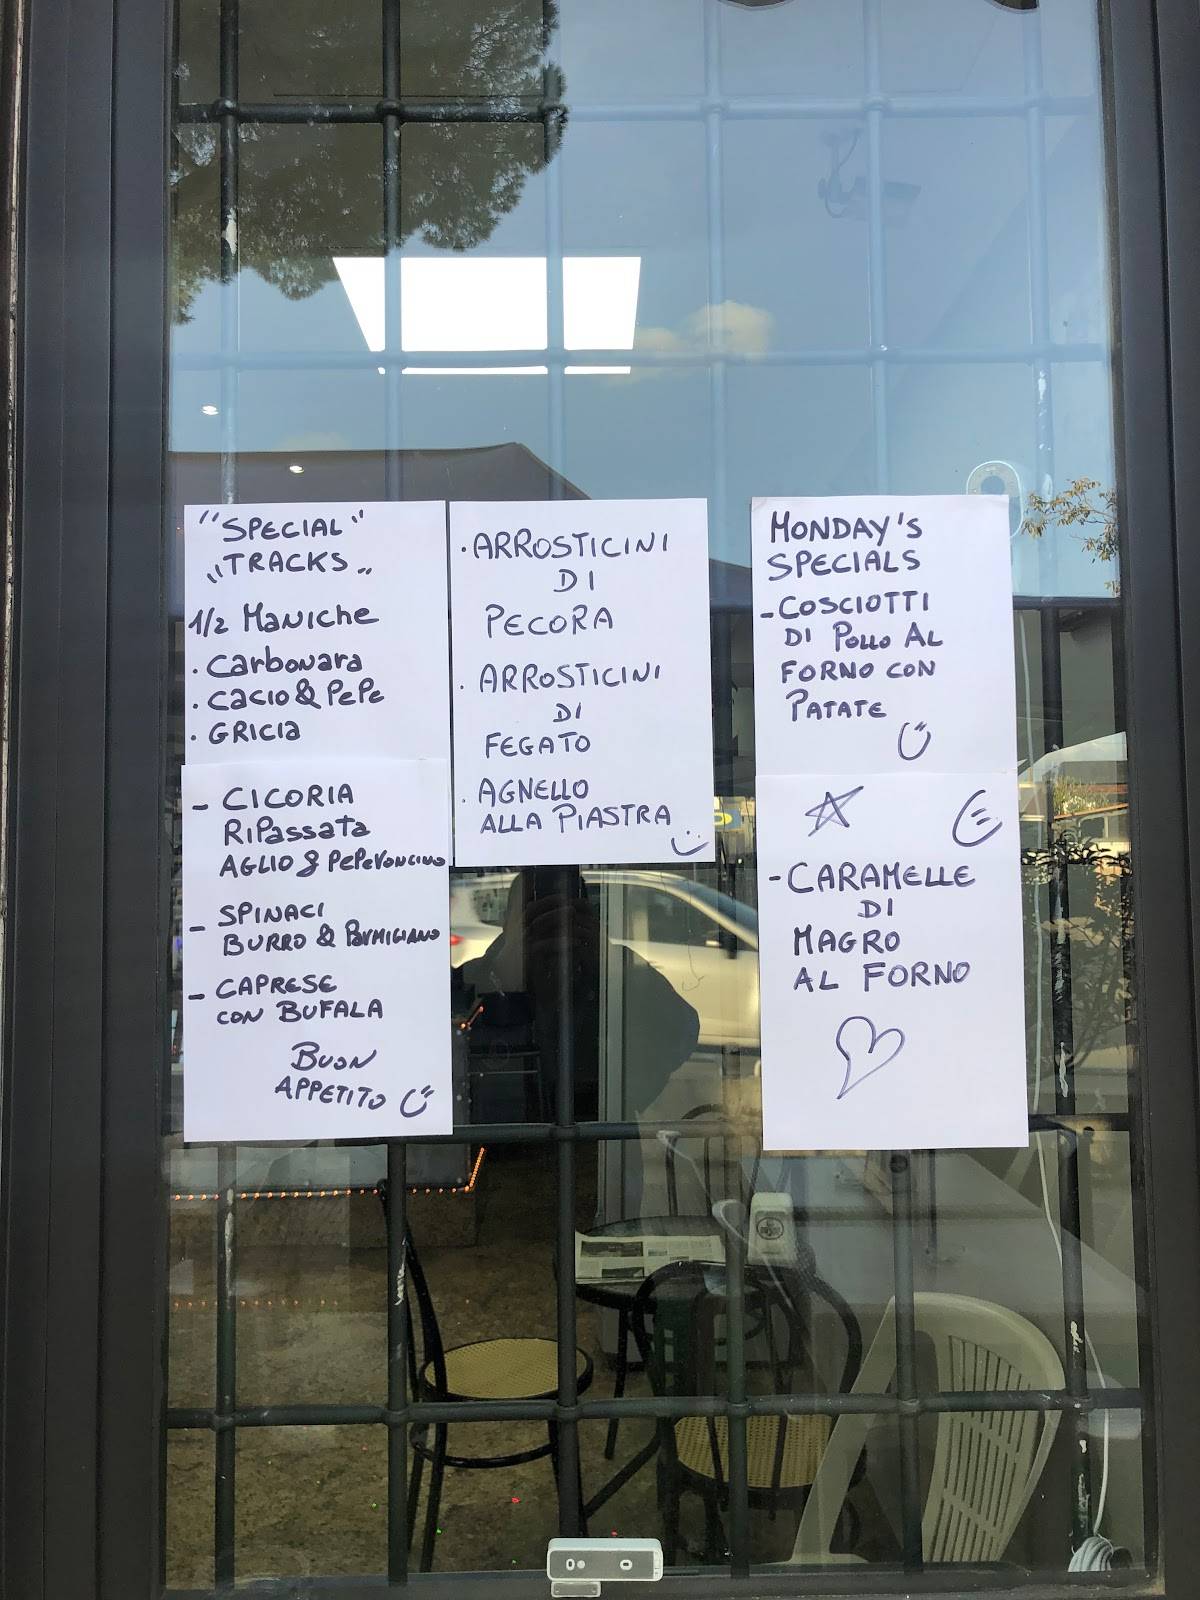 "SPECIAL"
"TRACKS"
1/2 MANICHE
. CARBONARA
. CACIO & PEPE
. GRICIA
- CICORIA
RIPASSATA
AGLIO & PEPERONCINO
- SPINACI
BURRO & PARMIGIANO
- CAPRESE
CON BUFALA
BUON
APPETITO
. ARROSTICINI
DI
PECORA
. ARROSTICINI
DI
FEGATO
. AGNELLO
ALLA PIASTRA
MONDAY'S
SPECIALS
- COSCIOTTI
DI POLLO AL
FORNO CON
PATATE
- CARAMELLE
DI
MAGRO
AL FORNO